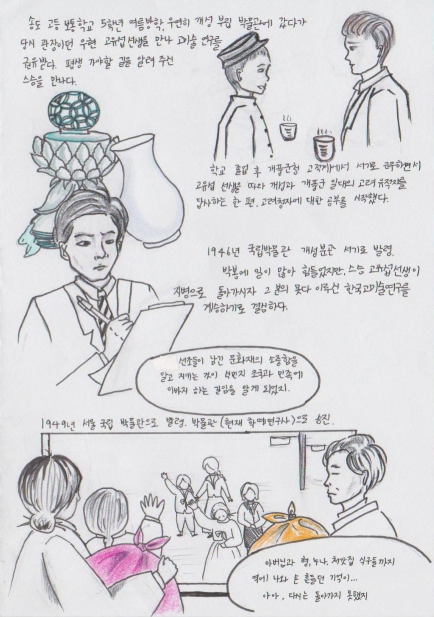 송도 고등 보통학교 5학년 여름방학, 우연히 개성 부립 박물관에 갔다가
당시 관장이던 우현 고유섭선생을 만나 고미술 연구를
권유받다. 평생 가야할 길을 알려 주신
스승을 만나다.
학교 졸업 후 개풍군청 고적계에서 서기로 근무하면서
고유섭 선생을 따라 개성과 개풍군 일대의 고려 유적지를
답사하는 한 편, 고려청자에 대한 공부를 시작했다.
1946년 국립박물관 개성분관 서기로 발령.
박봉에 일이 많아 힘들었지만, 스승 고유섭선생이
지병으로 돌아가시자 그 분의 못다 이루신 한국고미술연구를
계승하기로 결심하다.
선조들이 남긴 문화재의 소중함을
알고 지키는 것이 조국과 민족에
이바지 하는 길임을 알게 되었지.
1949년 서울 국립 박물관으로 발령. 박물관 (현재 학예연구사)으로 승진.
아버님과 형, 누나, 식구들까지
역에 나와 손 흔들던 기억이...
아아, 다시는 돌아가지 못했지